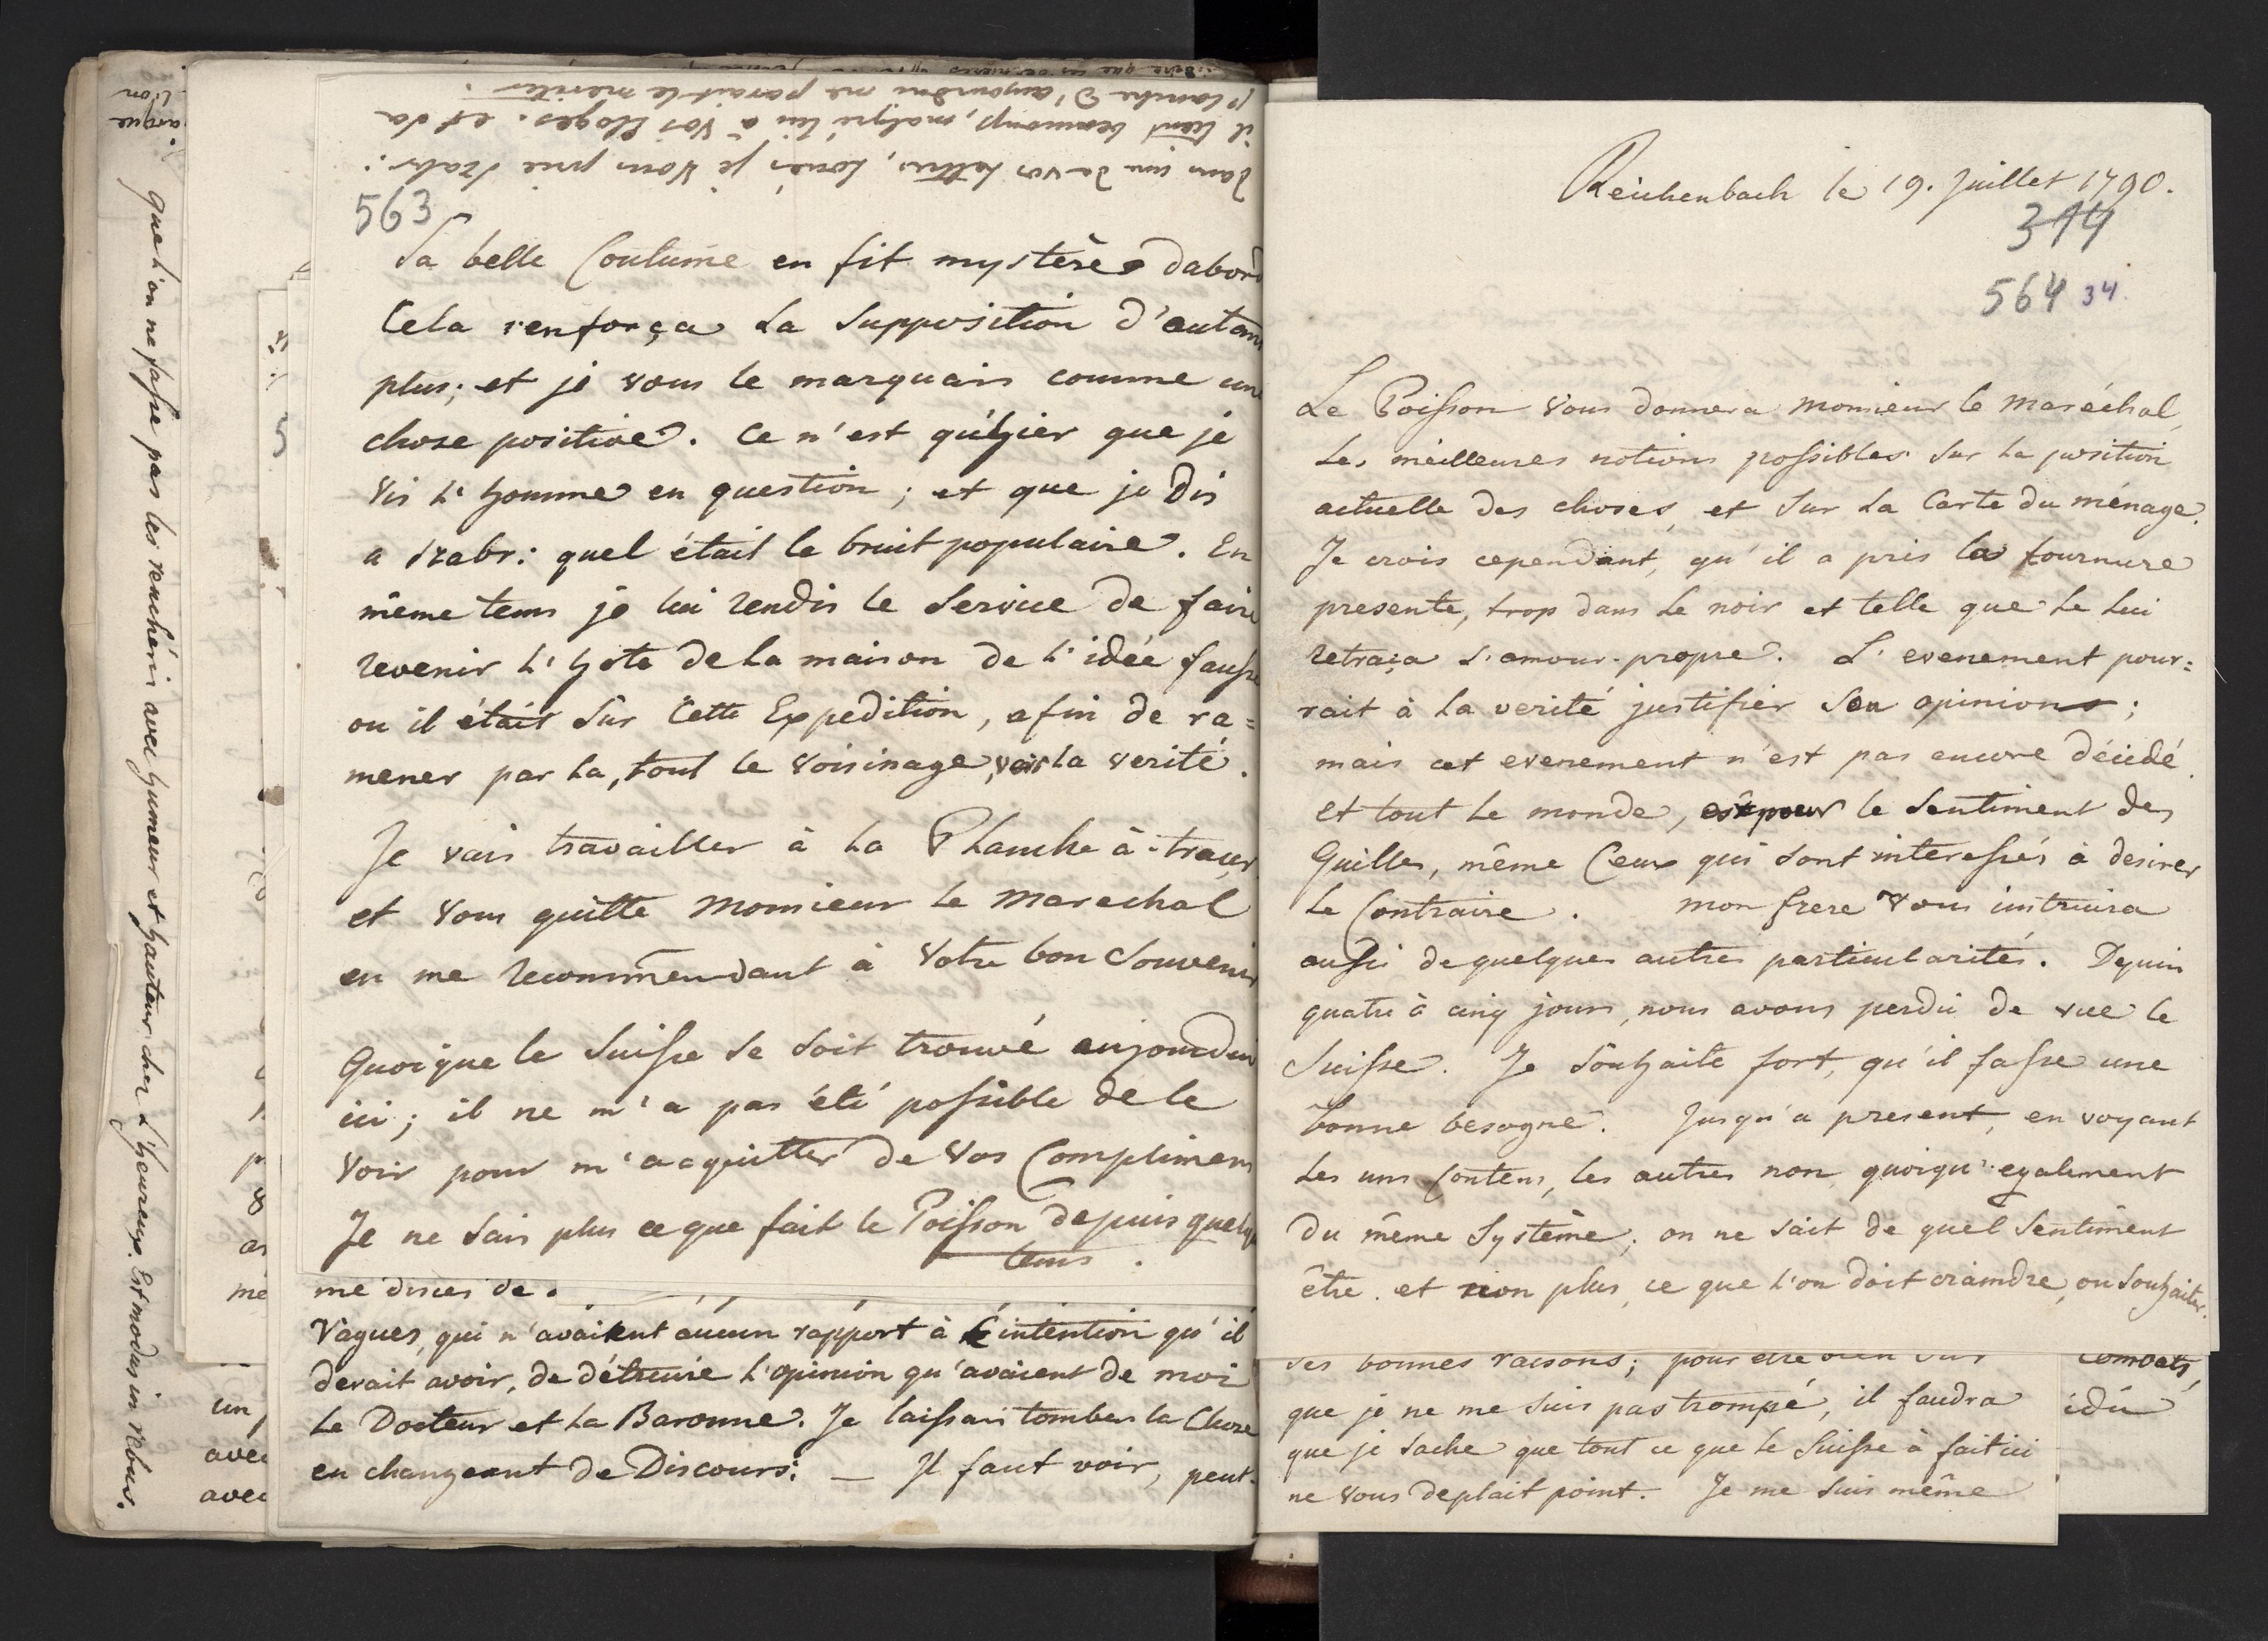 dans une de vos lettres, loués je Vous prie Szabr:
il tient beaucoup, malgré lui à Vos Eloges. et sa
planche d'aujourdui me parait le meriter.
563
Sa belle Coutume en fit mystère dabord
Cela renforça la supposition d'autan
plus; et je vous le marquais comme une
chose positive. Ce n'est qu'hier que je
vis l'homme en question; et que je dis
a Szabr: quel était le bruit populaire. En
même tems je lui rendis le service de faire
revenir l'hote de la maison de l'idée fausse
ou il était sur Cette Expedition, afin de ra=
mener par la, tout le voisinage, vers la verité.
Je vais travailler à la Planche à-tracer
et vous quitte Monsieur le Marechal
en me recommendant à votre bon Souvenir
Quoique le Suisse se soit trouvé aujourdui
ici; il ne m'a pas été possible de le
voir pour m'acquitter de vos Complimens
Je ne sais plus ce que fait le Poisson depuis quelq
tems.
me disces de
Vagues, qui n'avaient aucun rapport à l'intention qu'il
devait avoir, de détruire l'opinion qu'avaient de moi
le Docteur et la Baronne. Je laissais tomber la Chose
en changeant de Discours: — Il faut voir, peut-
que l'on ne fasse pas les renchéris avec humeur et hauteur chez L'heureux. Est modus in rebus.
un
avec
avec
Reichenbach le 19. Juillet 1790.
314
564 34.
Le Poisson vous donnera Monsieur le Maréchal,
les meilleures notions possibles sur la position
actuelle des choses, et sur la Carte du ménage.
Je crois cependant, qu'il a pris la tournure
presente, trop dans le noir et telle que le lui
retraça l'amour-propre. L'evenement pour=
rait à la verité justifier son opinion;
mais cet evenement n'est pas encore décidé.
et tout le monde, est pour le sentiment des
Quilles, même Ceux qui sont interessés à desirer
le Contraire. Mon frere vous instruira
aussi de quelques autres particularités. Depuis
quatre à cinq jours, nous avons perdu de vue le
Suisse. Je souhaite fort, qu'il fasse une
bonne besogne. Jusqu'a present, en voyant
les uns Contens, les autres non quoiqu'egalement
du même Système; on ne sait de quel sentiment
être. et non plus, ce que l'on doit craindre, ou souhaiter.
ses bonnes raisons; pour etre bien sur
que je ne me suis pas trompé, il faudra
que je sache que tout ce que le Suisse à fait ici
ne vous deplait point. Je me suis même